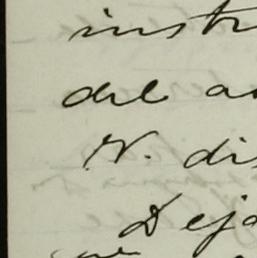 instr
del a
N. dis
Deja